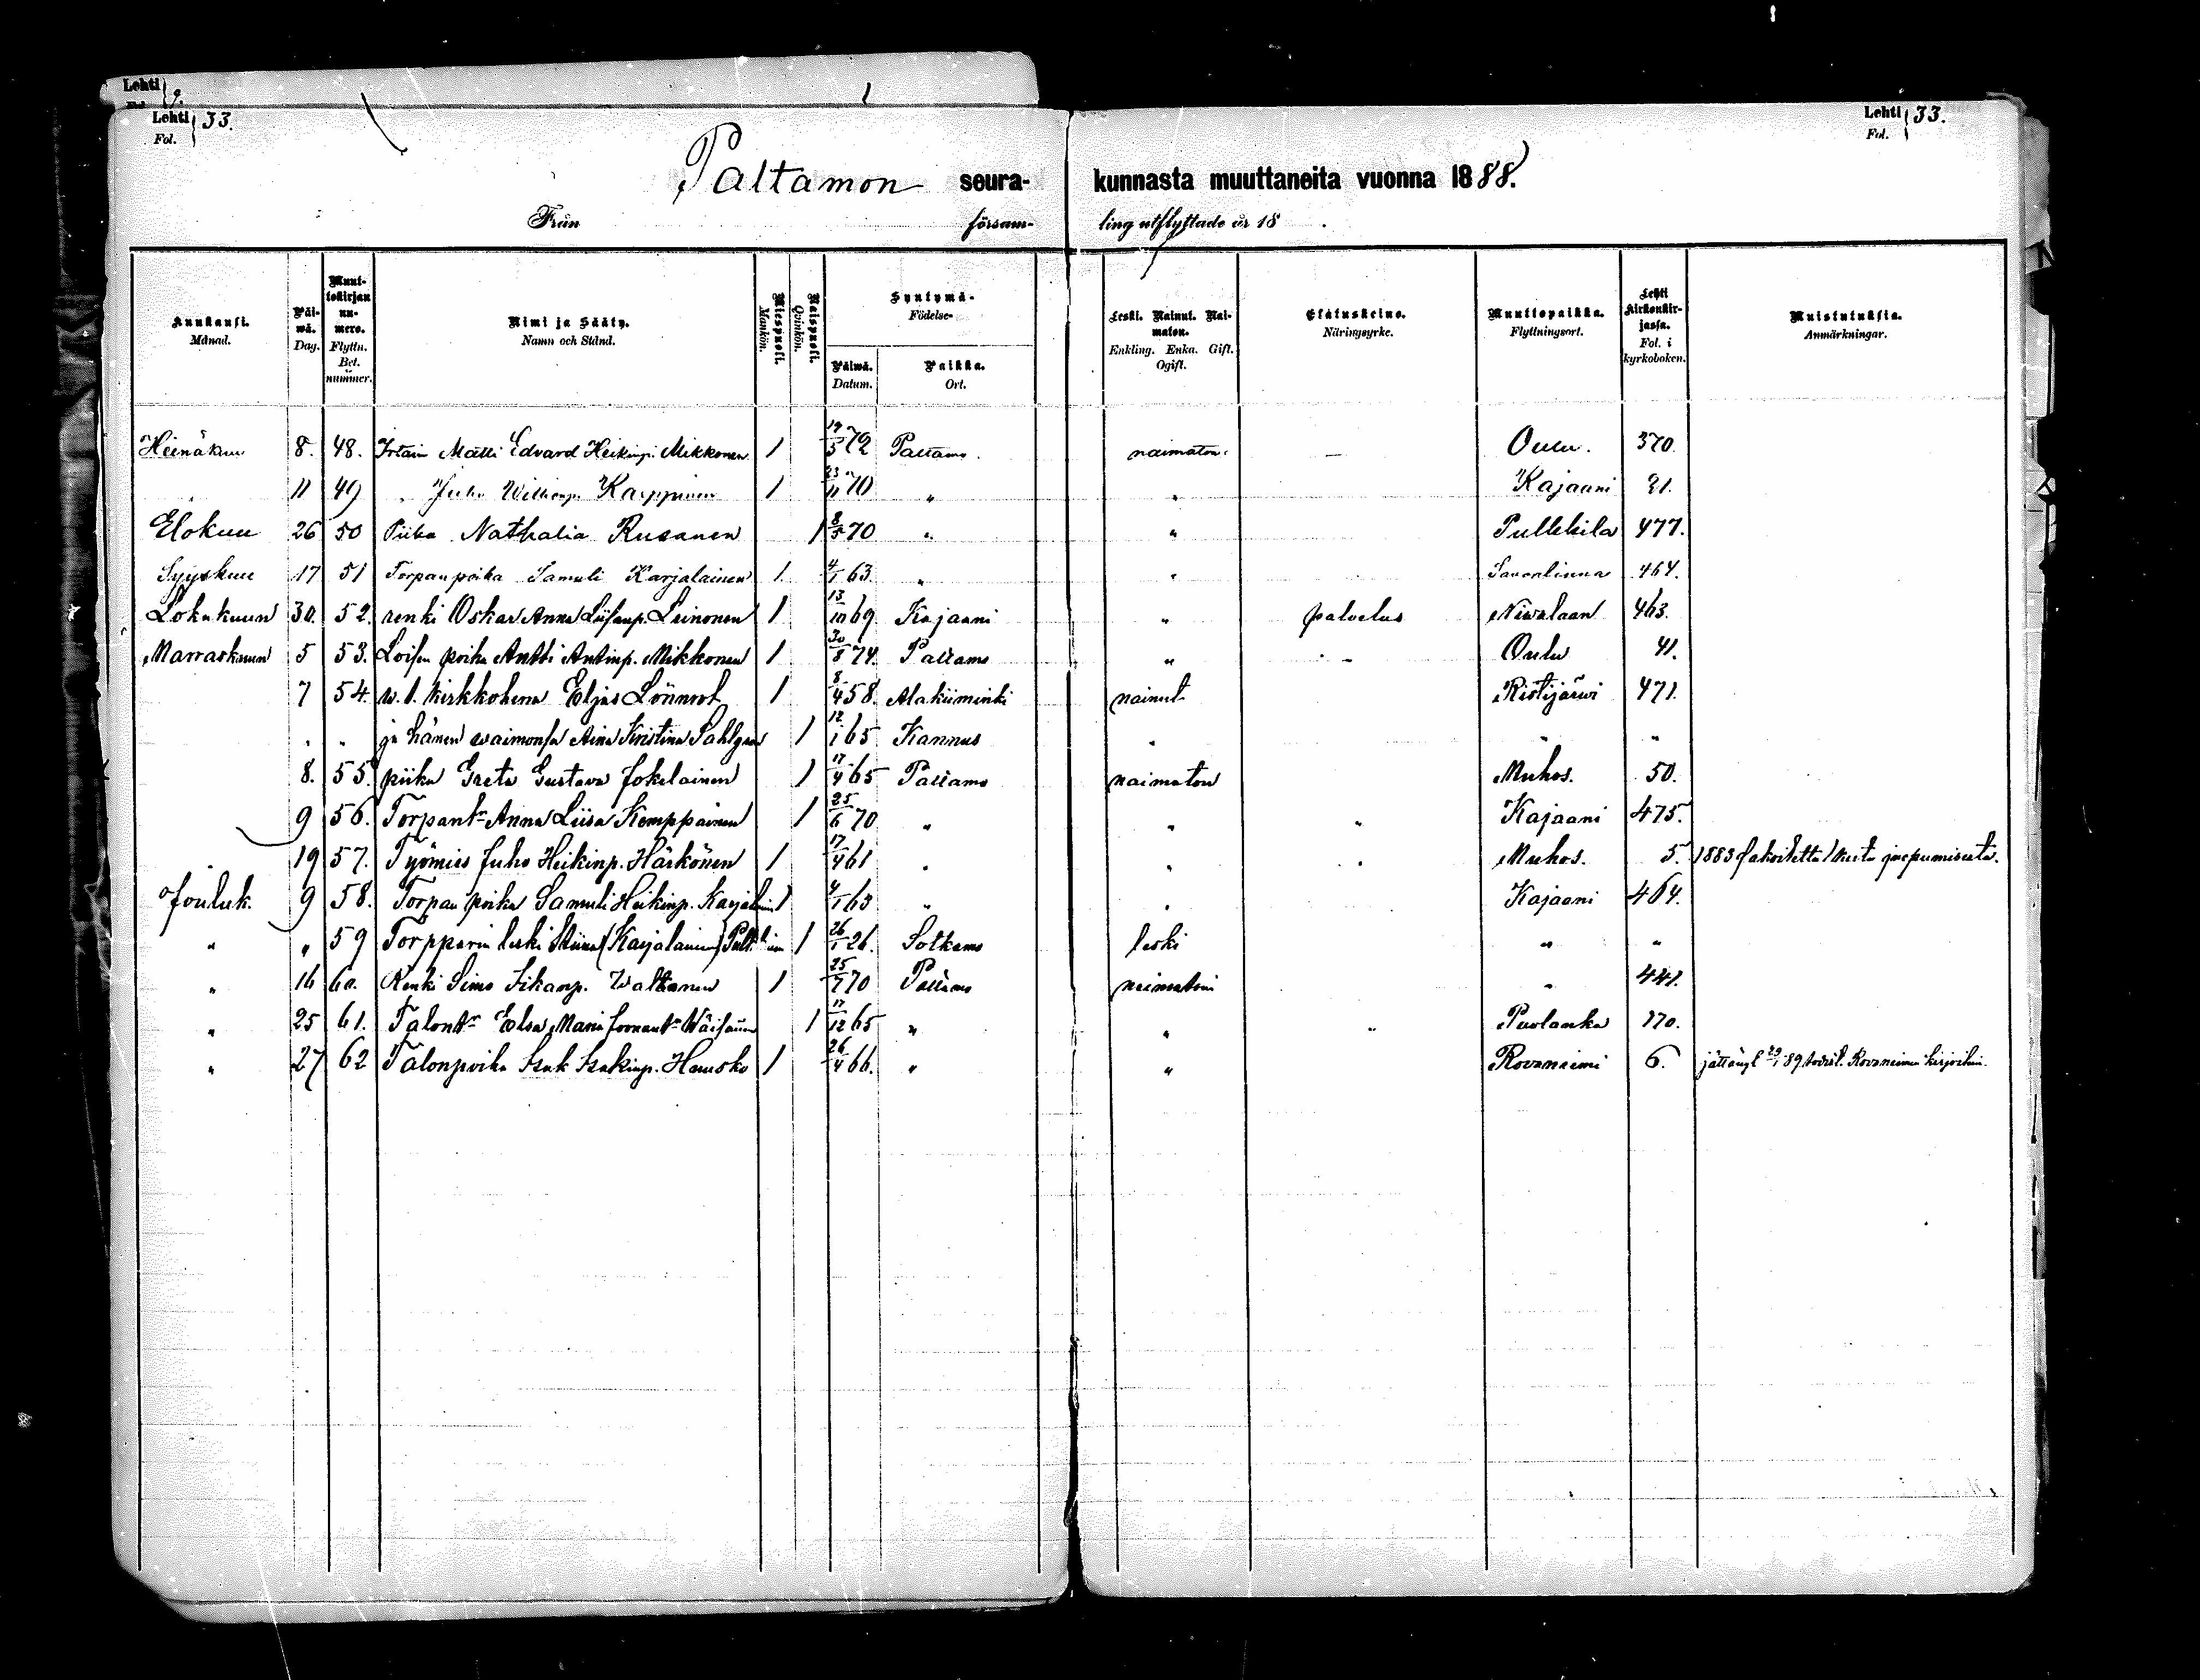 Lehti 9.
Lehti Fol. 33.
Lehti Fol. 33.
Paltamon seura- kunnasta muuttaneita vuonna 1888.
Från försam- ling utflyttade år 18 .
Kuukausi. Månad.
Päiwä. Dag.
Muuttokirjan numero. Flyttn. Bet. nummer.
Nimi ja Sääty. Namn och Stånd.
Miespuoli. Mankön.
Naispuoli. Qvinkön.
Syntymä- Födelse-
Päiwä. Datum.
Paikka. Ort.
Leski. Nainut. Naimaton. Enkling. Enka. Gift. Ogift.
Elatuskeino. Näringsyrke.
Muuttopaikka. Flyttningsort.
Lehti Kirkonkirjassa. Fol. i kyrkoboken.
Muistutuksia. Anmärkningar.
Heinäkuu 8. 48. Matti Edvard Heikinp. Mikkonen 1 19/5 72 Paltamo. naimaton. — Oulu. 370.
11 49 " Juho Wilhemp. Karppinen 1 23/11 70 " " Kajaani 21.
Elokuu 26 50 Piika Nathalia Rusanen 1 8/5 70 " " Pulkkila 477.
Syyskuu 17 51 Torpanpoika Samuli Karjalainen 1. 4/1 63. " " Savonlinna 464.
Lokakuun 30. 52. renki Oskar Anna Liisanp. Leinonen 1 13/10 69 Kajaani " palvelus Niwalaan 463.
Marraskuun 5 53. Loisen poika Antti Antinp. Mikkonen 1 30/8 74. Paltamo " - Oulu 41.
7 54. w.t. kirkkoherra Eljas Lönnrot 1 8/4 58. Alakiiminki nainut Ristijärwi 471.
" " ja hänen waimonsa Aina Kristina Sahlgren 1 12/1 65 Kannus " " "
8. 55. piika Greta Gustava Jokelainen 1 17/4 65 Paltamo naimaton Muhos. 50.
9 56. Torpantr Anna Liisa Kemppainen 1 25/6 70 " " " Kajaani 475.
19 57. Työmies Juho Heikinp. Härkönen 1 17/4 61 " " " Muhos. 5. 1883
Jouluk. 9 58. Torpan poika Samuli Heikinp. 1 4/1 63 " " Kajaani 464.
" " 59 Torpparin leski Stiina (Karjalainen) 1 26/1 26. Sotkamo leski " "
" 16 60. Renki Simo Waltanen 1 25/7 70 Paltamo naimatoin " 441.
" 25 61. Talontr Elsa Maria Joonantr Wäisänen 1 17/12 65 " " " Puolanka 170.
" 27 62 Talonpoika Isak Isakinp. Hausko 1 26/4 66. " " Rovaniemi 6. 89 Rovaniemen